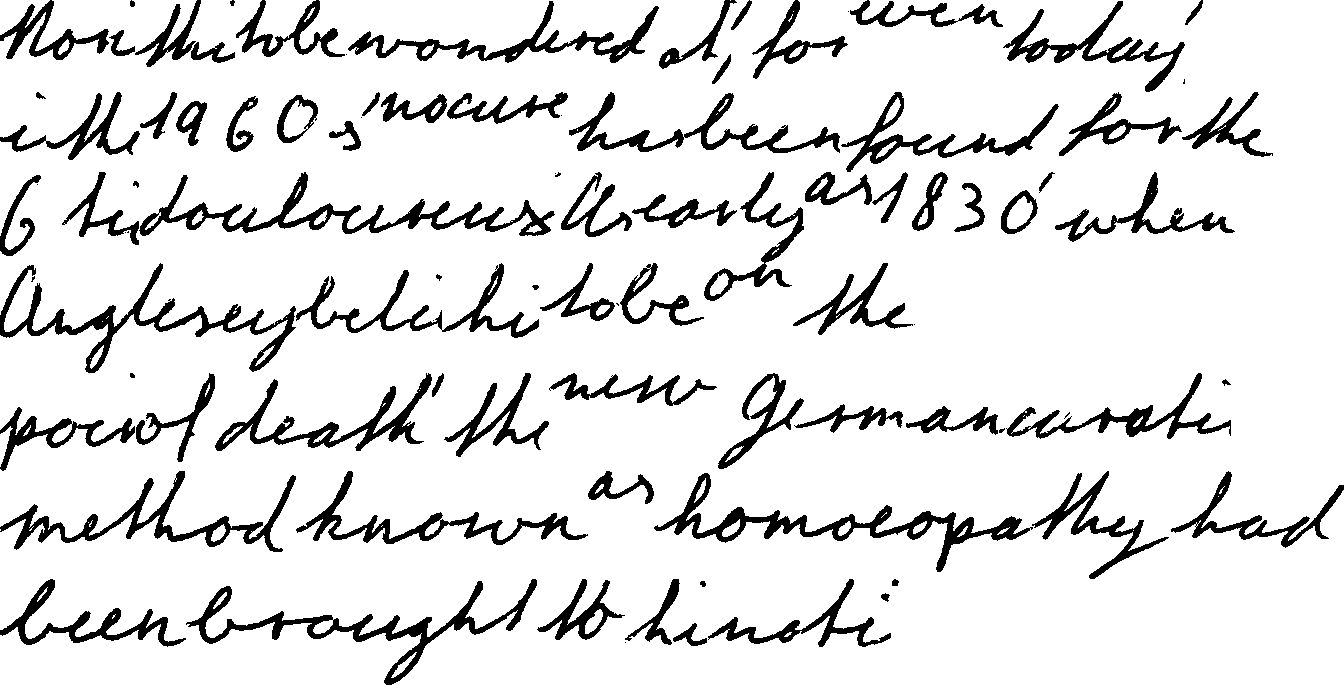 Nor is this to be wondered at, for even today
in the 1960s' no cure has been found for the
tic douloureux As early as 1830 when
Anglesey believed his to be on the
point of death" the new German curative
method known as homoeopathy had
been brought to his notice